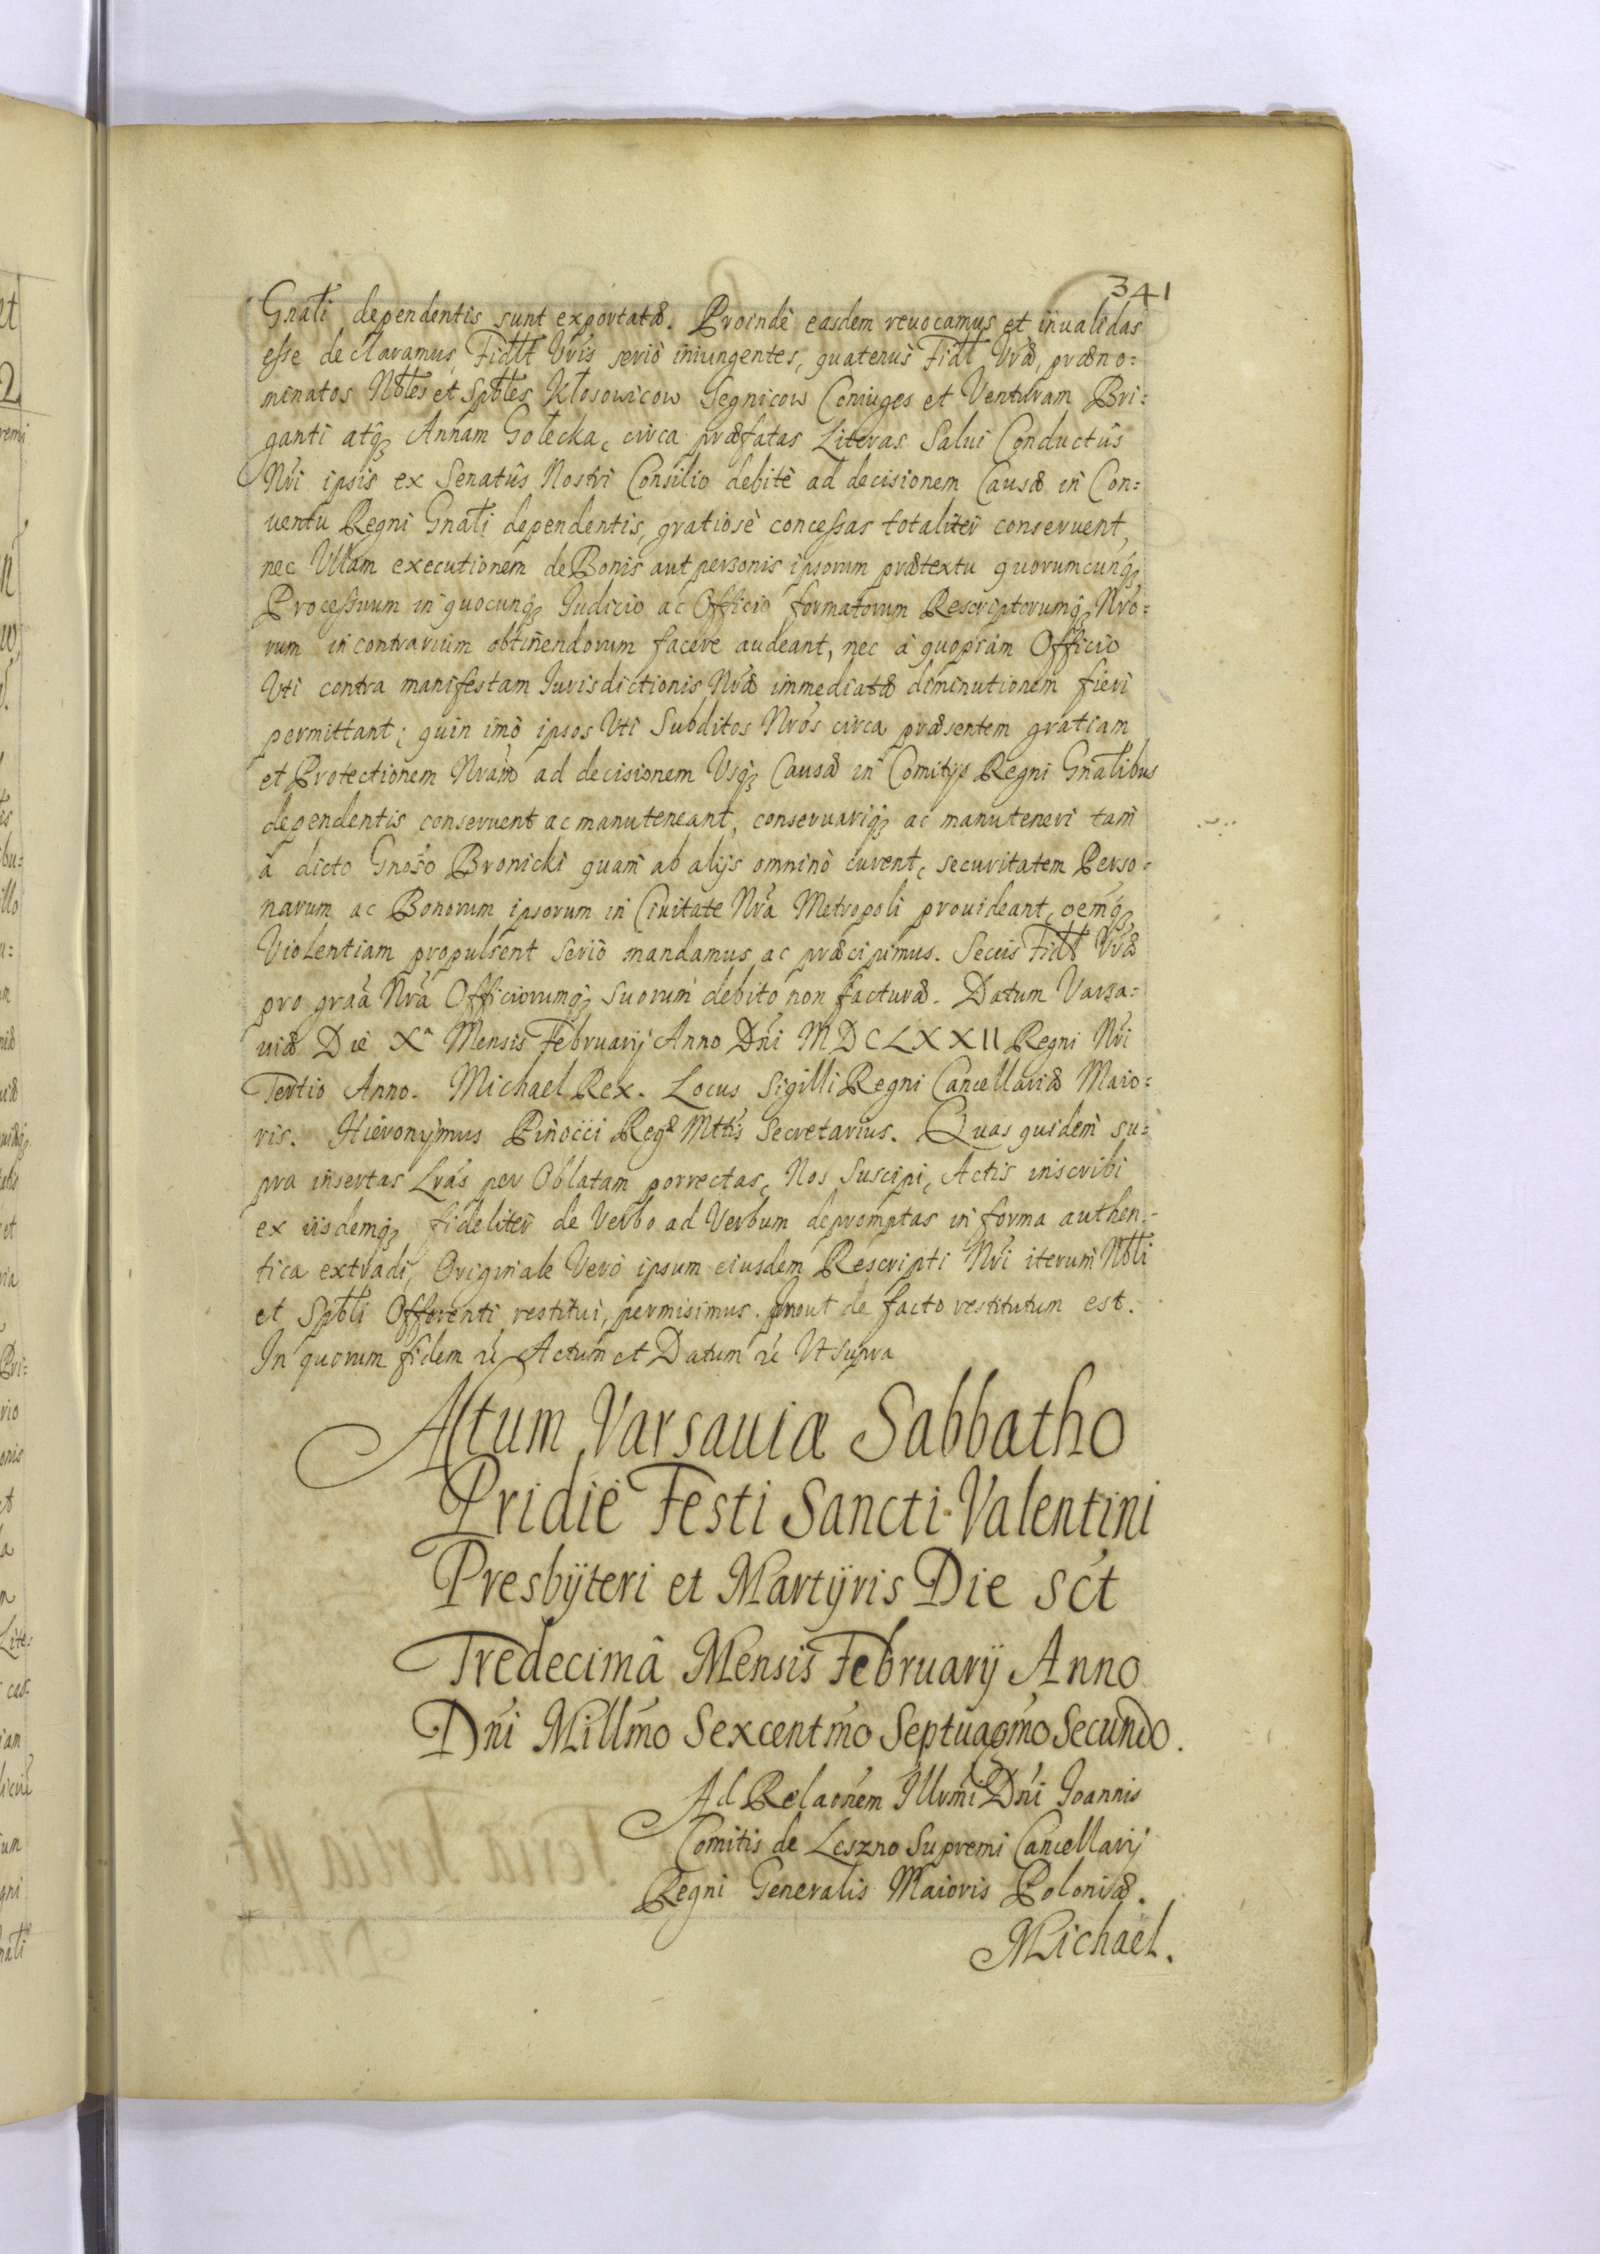 341
Gnâli dependentis sunt exportatæ. Proindè easdem reuocamus et inualidas
esse declaramus, Fidtt Vrîs seriò iniungentes, quatenus Fidt Vræ, præno=
minatos Nbles et Spbles Kłosowicow Gegnicow Coniuges et Venturam Bri=
ganti atq3 Annam Gołecka, circa præfatas Literas Salui Conductûs
Nri ipsis ex Senatûs Nostri Consilio debitè ad decisionem Causæ in Con=
uentu Regni Gnâli dependentis, gratiosè concessas totaliter conseruent,
nec Vllam executionem de Bonis aut personis ipsorum prætextu quorumcunq3
Processuum in quocunq3 Iudicio ac Officio formatorum Rescriptorumq3 Nro=
rum in contrarium obtinendorum facere audeant, nec à quopiam Officio
Vti contra manifestam Iurisdictionis Nræ immediatæ diminutionem fieri
permittant; quin imò ipsos Vti Subditos Nros circa præsentem gratiam
et Protectionem Nram ad decisionem Vsq3 Causæ in Comitijs Regni Gnâlibus
dependentis conseruent ac manuteneant, conseruariq3 ac manuteneri tam
à dicto Gnoso Bronicki quam ab alijs omninò curent, securitatem Perso=
narum ac Bonorum ipsorum in Ciuitate Nrâ Metropoli prouideant, oemq3
Violentiam propulsent seriò mandamus ac præcipimus. Secus Fidt Vræ
pro graâ Nrâ Officiorumq3 suorum debito non facturæ. Datum Varsa=
uiæ Die Xa Mensis February Anno Dni MDCLXXII Regni Nri
Tertio Anno. Michael Rex. Locus Sigilli Regni Cancellariæ Maio=
ris. Hieronymus Pinocci Regæ Mttis Secretarius. Quas quidem su=
pra insertas Lras per Oblatam porrectas, Nos suscipi, Actis inscribi
ex iisdemq3 fideliter de Verbo ad Verbum depromptas in forma authen=
tica extradi, Originale Verò ipsum eiusdem Rescripti Nri iterum Nbli
et Spbli Offerenti restitui, permisimus. prout de facto restitutum est.
In quorum fidem Actum et Datum Vt supra
Actum Varsauiæ Sabbatho
Pridie Festi Sancti Valentini
Presbÿteri et Martÿris Die sct
Tredecimâ Mensis February Anno
Dni Millmo Sexcentmo Septuagmo Secundo.
Ad Relaonem Illvmi Dni Ioannis
Comitis de Leszno Supremi Cancellarij
Regni Generalis Maioris Poloniæ.
Michaël.